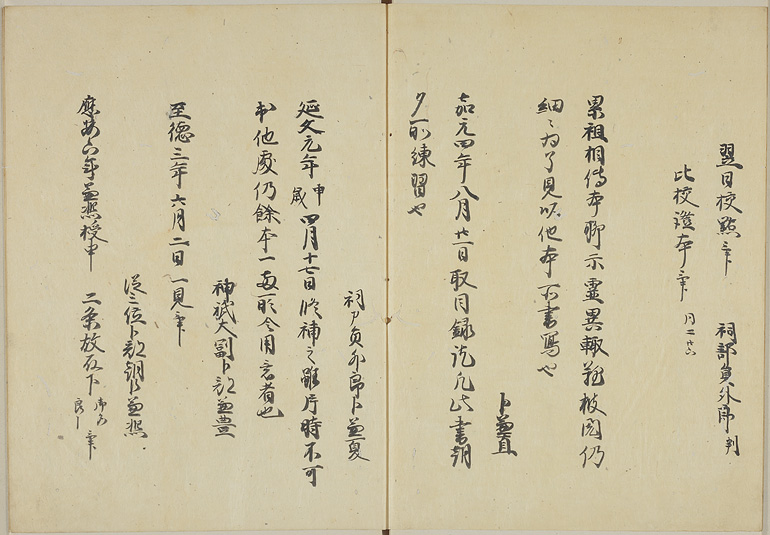 翌日校點了 祠部員外郎判
比校證本了 月二廿六
累祖相傳本聊示靈異輙難披閲仍
細々為了見以他本所書寫也
卜兼直
嘉元四年八月廿一日取目録訖凡此書朝
夕所練習也
祠部員外郎卜兼夏
延文元年申歳四月十七日修補之雖片時不可
出他處仍餘本一両部令用意者也
神祇大副卜部兼豊
至德三年六月二日一見了
從三位卜部朝臣兼熙
應安六年兼熙授申 二条放石下